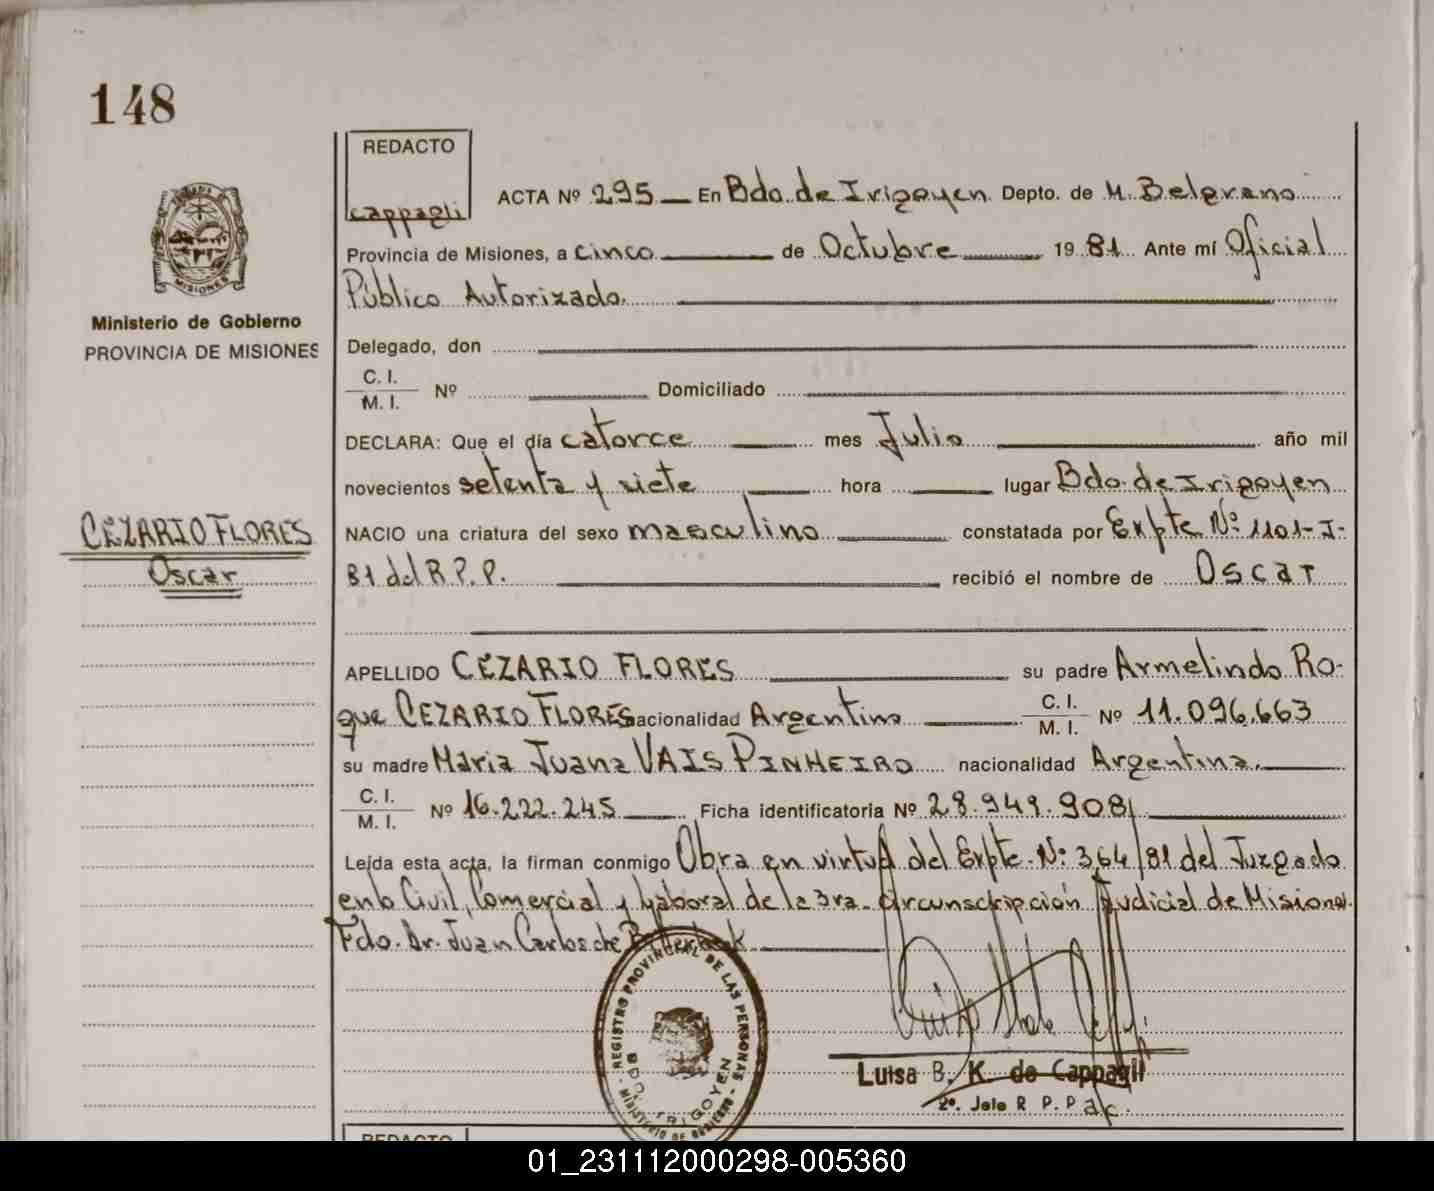 148
REDACTO
cappagli
ACTA Nº 295 En Bdo. de Irigoyen Depto. de M. Belgrano
Provincia de Misiones, a cinco de Octubre 19 81 Ante mí Oficial
Público Autorizado.
MISIONES
Ministerio de Gobierno
PROVINCIA DE MISIONES
Delegado, don
C. I.
M. I. Nº Domiciliado
DECLARA: Que el día catorce mes Julio año mil
novecientos setenta y siete hora lugar Bdo. de Irigoyen
CEZARIO FLORES
Oscar
NACIO una criatura del sexo masculino constatada por Expte Nº: 1101-I-
81 del R.P.P. recibió el nombre de Oscar
APELLIDO CEZARIO FLORES su padre Armelindo Ro-
que CEZARIO FLORES nacionalidad Argentino C. I. M. I. Nº 11.096.663
su madre Maria Juana VAIS PINHEIRO nacionalidad Argentina.
C. I.
M. I. Nº 16.222.245 Ficha identificatoria Nº 28.949.908
Leída esta acta, la firman conmigo Obra en virtud del Expte. Nº: 364/81 del Juzgado
en lo Civil, Comercial y Laboral de la 3ra. Circunscripción Judicial de Misiones.
Fdo. Dr. Juan Carlos de
REGISTRO PROVINCIAL DE LAS PERSONAS
BDO. IRIGOYEN
MINISTERIO DE GOBIERNO
Luisa B. K. de Cappagli
2º. Jefe R. P. P. a/c.
REDACTO
01_231112000298-005360